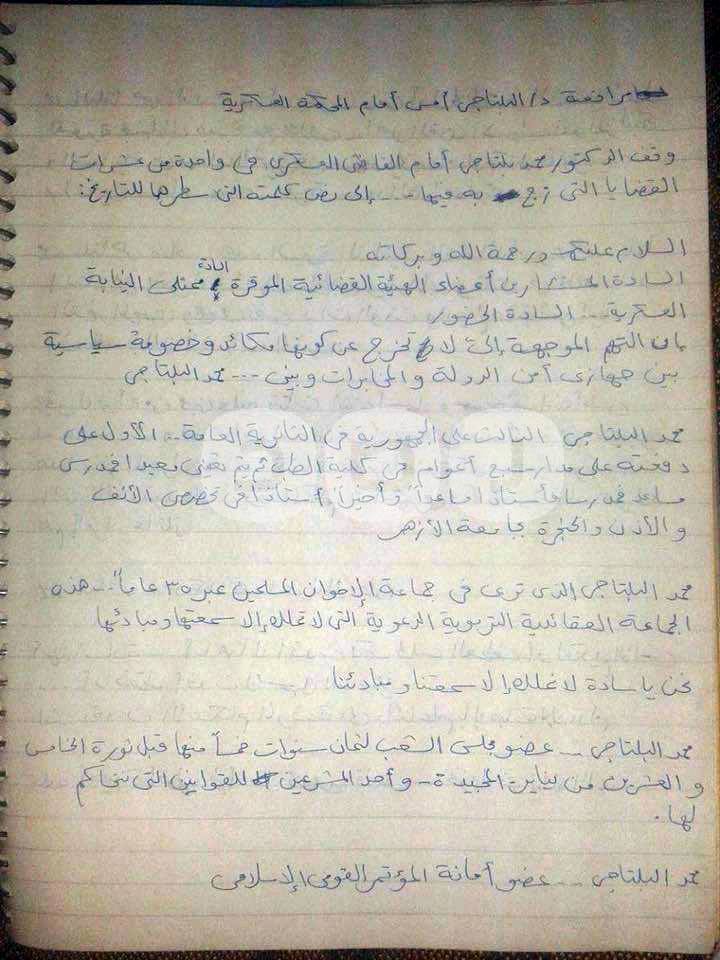 مرافعة د/ البلتاجى أمس أمام المحكمة العسكرية
وقف الدكتور محمد بلتاجى أمام القاضى العسكرى فى واحدة من عشرات
القضايا التى زج به فيها --- إلى نص كلمته التى سطرها للتاريخ:
السلام عليكم ورحمة الله وبركاته
السادة المستشارين أعضاء الهيئة القضائية الموقرة السادة ممثلى النيابة
العسكرية -- السادة الحضور
إن التهم الموجهة إلىّ لا تخرج عن كونها مكائد وخصومة سياسية
بين جهازى أمن الدولة والمخابرات وبينى --- محمد البلتاجى
محمد البلتاجى الثالث على الجمهورية فى الثانوية العامة -- الأول على
دفعته على مدار سبع أعوام فى كلية الطب ثم يتم تعيينى معيداً فمدرس
مساعد فمدرساً فأستاذاً مساعداً وأخيراً أستاذاً فى تخصص الأنف
والأذن والحنجرة بجامعة الأزهر
محمد البلتاجى الذى تربى فى جماعة الإخوان المسلمين عبر ٣٥ عاماً -- هذه
الجماعة العقائدية التربوية الدعوية التى لا تملك إلا سمعتها ومبادئها
نحن يا سادة لا نملك إلا سمعتنا ومبادئنا
محمد البلتاجى -- عضو مجلس الشعب لثمان سنوات خمساً منها قبل ثورة الخامس
والعشرين من يناير المجيدة - وأحد المشرعين للقوانين التى نتحاكم
لها.
محمد البلتاجى --- عضو أمانة المؤتمر القومى الإسلامى